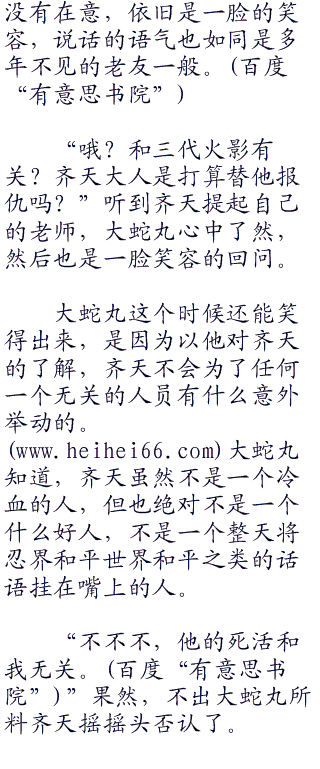 没有在意，依旧是一脸的笑
容，说话的语气也如同是多
年不见的老友一般。(百度
“有意思书院”)
“哦？和三代火影有
关？齐天大人是打算替他报
仇吗？”听到齐天提起自己
的老师，大蛇丸心中了然，
然后也是一脸笑容的回问。
大蛇丸这个时候还能笑
得出来，是因为以他对齐天
的了解，齐天不会为了任何
一个无关的人员有什么意外
举动的。
(www.heihei66.com)大蛇丸
知道，齐天虽然不是一个冷
血的人，但也绝对不是一个
什么好人，不是一个整天将
忍界和平世界和平之类的话
语挂在嘴上的人。
“不不不，他的死活和
我无关。(百度“有意思书
院”)”果然，不出大蛇丸所
料齐天摇摇头否认了。